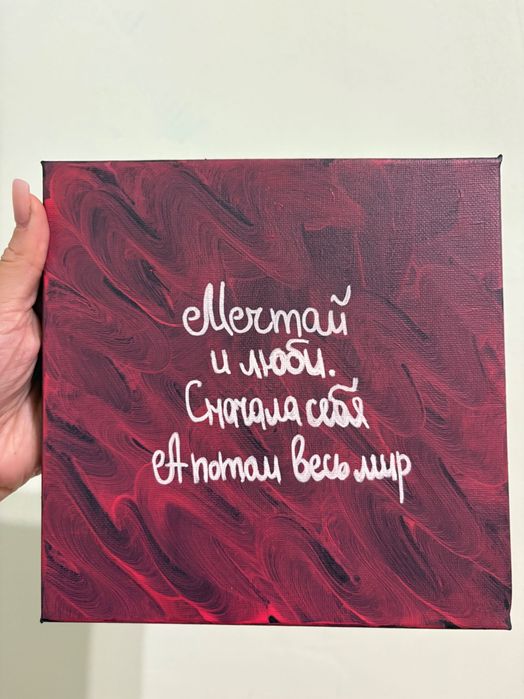 Мечтай
и люби.
Сначала себя
А потом весь мир